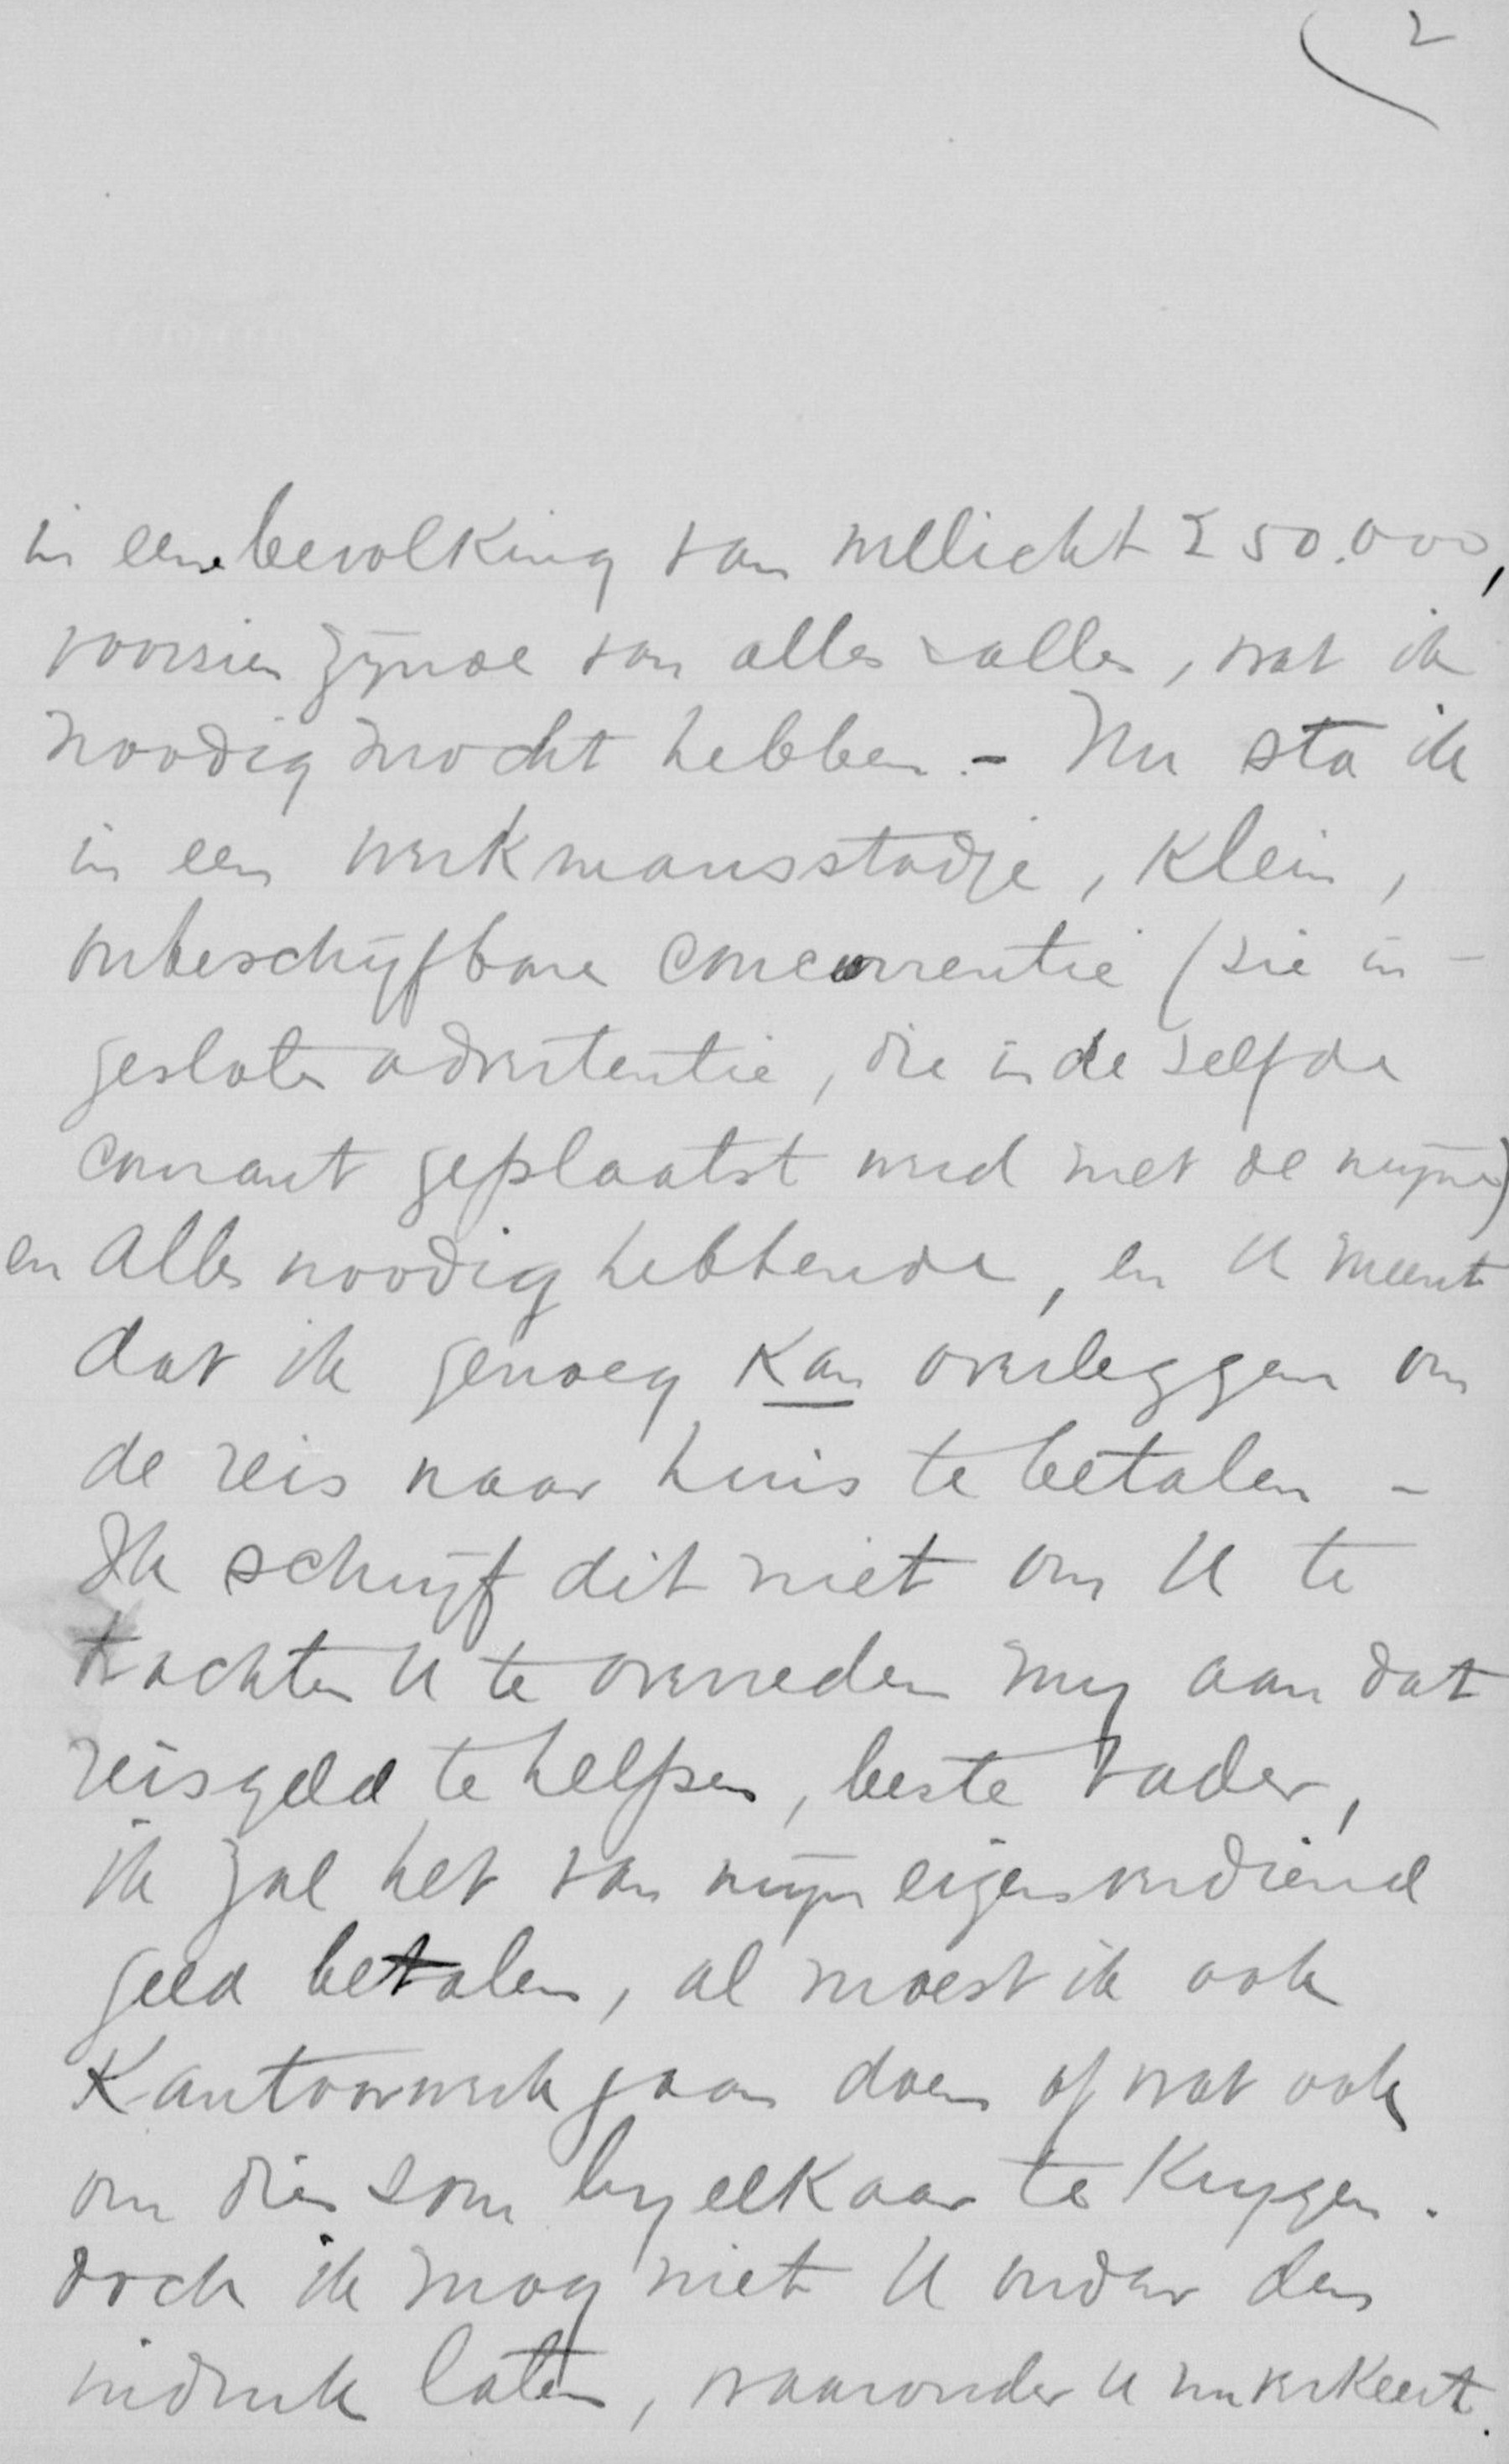 2
in eene bevolking van wellicht 250.000,
voorsien zijnde van alles & alles, wat ik
noodig mocht hebben. - Nu sta ik
in een werkmansstadje, klein,
onbeschrijfbare concurrentie (sie in-
gesloten advertentie, die in de selfde
courant geplaatst werd met de mijne)
en alles noodig hebbende, en U meent
dat ik genoeg kan overleggen om
de reis naar huis te betalen -
Ik schrijf dit niet om U te
trachten U te overreden mij aan dat
reisgeld te helpen, beste Vader,
ik zal het van mijn eigen verdiend
geld betalen, al moest ik ook
Kantoorwerk gaan doen of wat ook
om die som bijelkaar te krijgen.
doch ik mag niet U onder den
indruk laten, waaronder U nu verkeert.